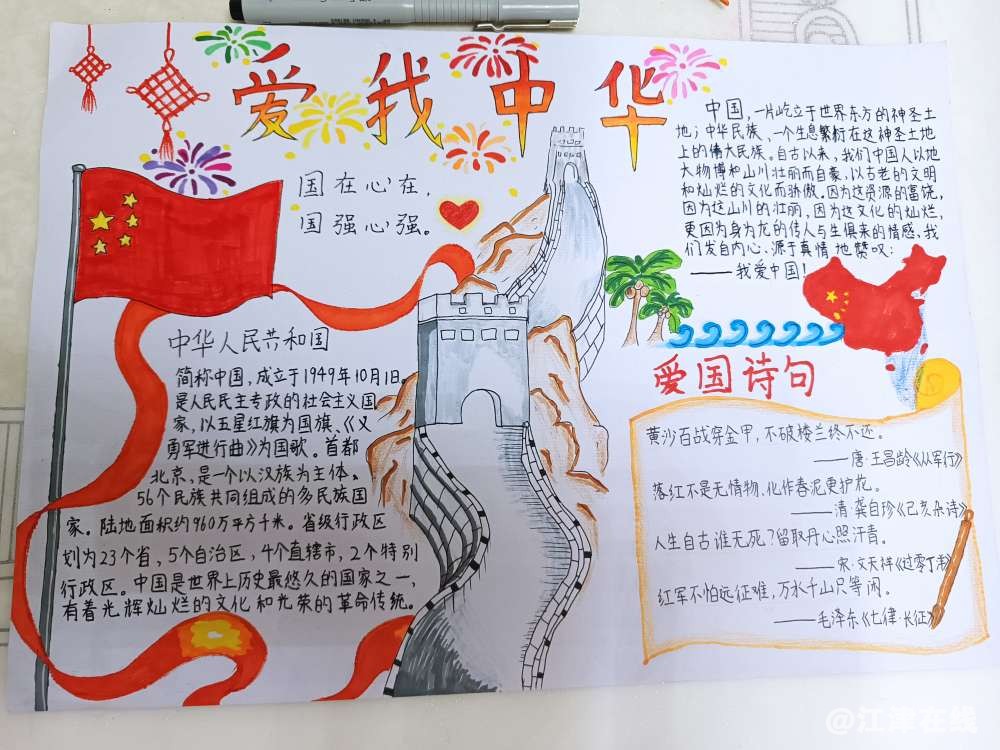 爱我中华
国在心在,
国强心强。
中华人民共和国
简称中国,成立于1949年10月1日。
是人民民主专政的社会主义国
家,以五星红旗为国旗、《义
勇军进行曲》为国歌。首都
北京,是一个以汉族为主体、
56个民族共同组成的多民族国
家。陆地面积约960万平方千米。省级行政区
划为23个省、5个自治区、4个直辖市、2个特别
行政区。中国是世界上历史最悠久的国家之一,
有着光辉灿烂的文化和光荣的革命传统。
中国,一片屹立于世界东方的神圣土
地;中华民族、一个生息繁衍在这神圣土地
上的偉大民族。自古以来,我们中国人以地
大物博和山川壮丽而自豪,以古老的文明
和灿烂的文化而骄傲。因为这资源的富饶,
因为这山川的壮丽,因为这文化的灿烂,
更因为身为龙的传人与生俱来的情感、我
们发自内心、源于真情地赞叹:
——我爱中国!
爱国诗句
黄沙百战穿金甲,不破楼兰终不还。
——唐·王昌龄《从军行》
落红不是无情物,化作春泥更护花。
——清·龚自珍《己亥杂诗》
人生自古谁无死?留取丹心照汗青。
——宋·文天祥《过零丁洋》
红军不怕远征难,万水千山只等闲。
——毛泽东《七律·长征》
@江津在线